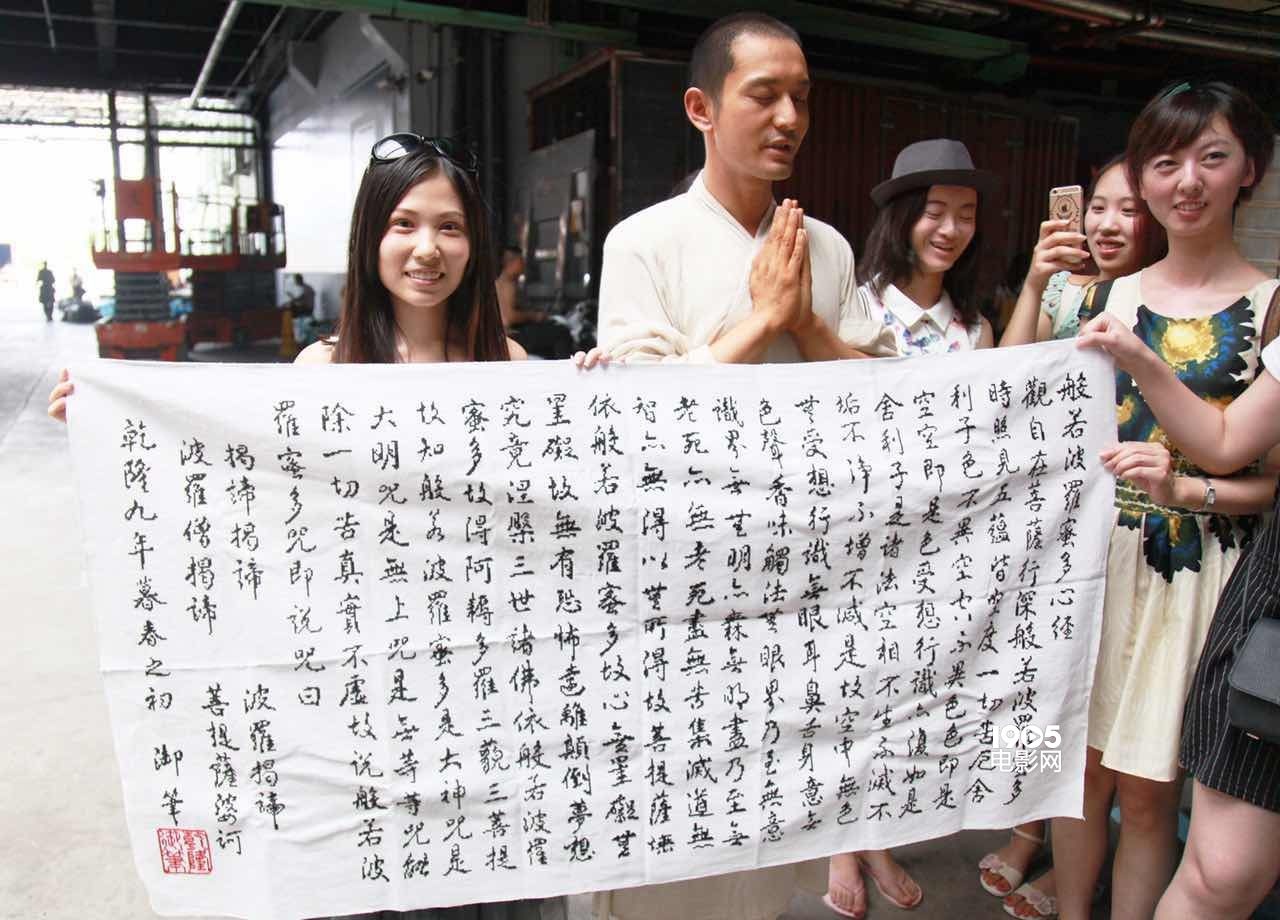 般若波羅蜜多心經
觀自在菩薩行深般若波羅蜜多
時照見五蘊皆空度一切苦厄舍
利子色不異空空不異色色即是
空空即是色受想行識亦復如是
舍利子是諸法空相不生不滅不
垢不淨不增不減是故空中無色
無受想行識無眼耳鼻舌身意無
色聲香味觸法無眼界乃至無意
識界無無明亦無無明盡乃至無
老死亦無老死盡無苦集滅道無
智亦無得以無所得故菩提薩埵
依般若波羅蜜多故心無罣礙無
罣礙故無有恐怖遠離顛倒夢想
究竟涅槃三世諸佛依般若波羅
蜜多故得阿耨多羅三藐三菩提
故知般若波羅蜜多是大神咒是
大明咒是無上咒是無等等咒能
除一切苦真實不虛故說般若波
羅蜜多咒即說咒曰
揭諦揭諦 波羅揭諦
波羅僧揭諦 菩提薩婆訶
乾隆九年暮春之初 御筆
乾隆御筆
1905
电影网